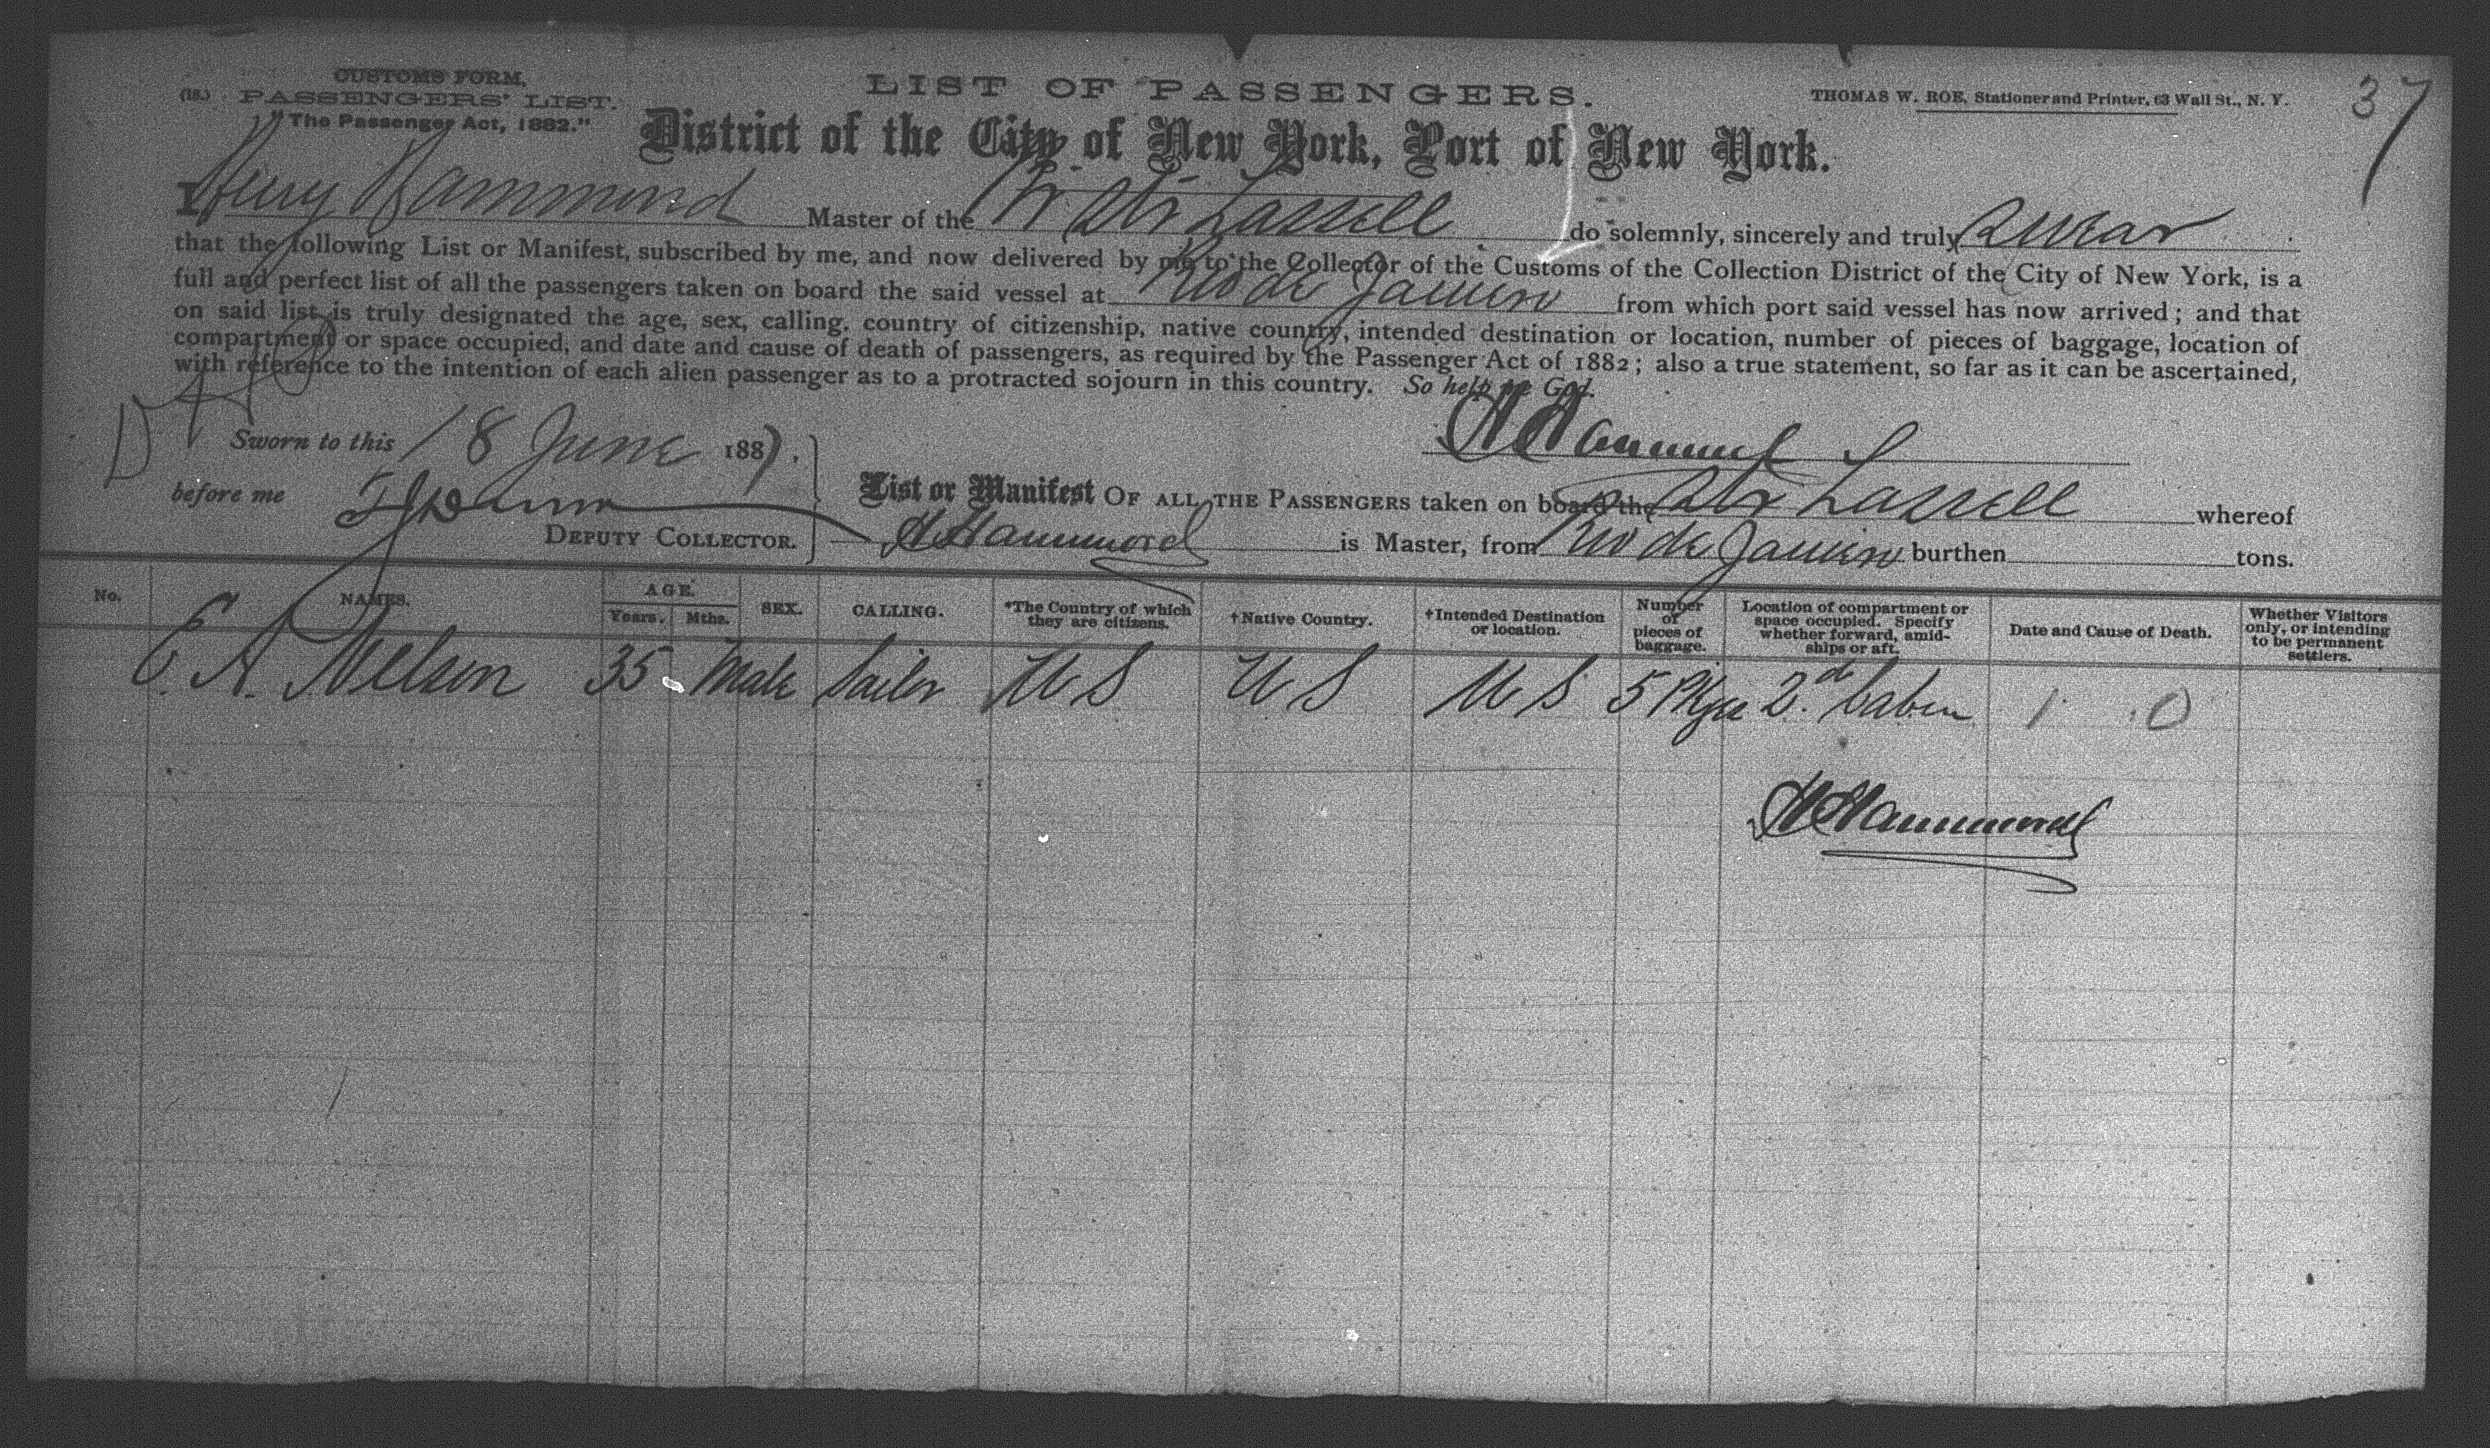 CUSTOMS FORM,
(18.) PASSENGERS' LIST.
"The Passenger Act, 1882."
LIST OF PASSENGERS.
THOMAS W. ROE, Stationer and Printer, 63 Wall St., N. Y.
37
District of the City of New York, Port of New York.
I Henry Hammond Master of the Br Str Lassell do solemnly, sincerely and truly swear
that the following List or Manifest, subscribed by me, and now delivered by me to the Collector of the Customs of the Collection District of the City of New York, is a
full and perfect list of all the passengers taken on board the said vessel at Rio de Janeiro from which port said vessel has now arrived; and that
on said list is truly designated the age, sex, calling, country of citizenship, native country, intended destination or location, number of pieces of baggage, location of
compartment or space occupied, and date and cause of death of passengers, as required by the Passenger Act of 1882; also a true statement, so far as it can be ascertained,
with reference to the intention of each alien passenger as to a protracted sojourn in this country. So help me God.
Sworn to this 18 June 1887.
H Hammond
before me
DEPUTY COLLECTOR.
List or Manifest OF ALL THE PASSENGERS taken on board the Str Lassell whereof
H Hammond is Master, from Rio de Janeiro burthen tons.
No.
NAMES.
AGE.
Years.
Mths.
SEX.
CALLING.
*The Country of which they are citizens.
†Native Country.
†Intended Destination or location.
Number of pieces of baggage.
Location of compartment or space occupied. Specify whether forward, amidships or aft.
Date and Cause of Death.
Whether Visitors only, or intending to be permanent settlers.
E. A. Nelson 35 Male Sailor U S U S U S 5 Pkgs 2d Cabin 1 0
H Hammond